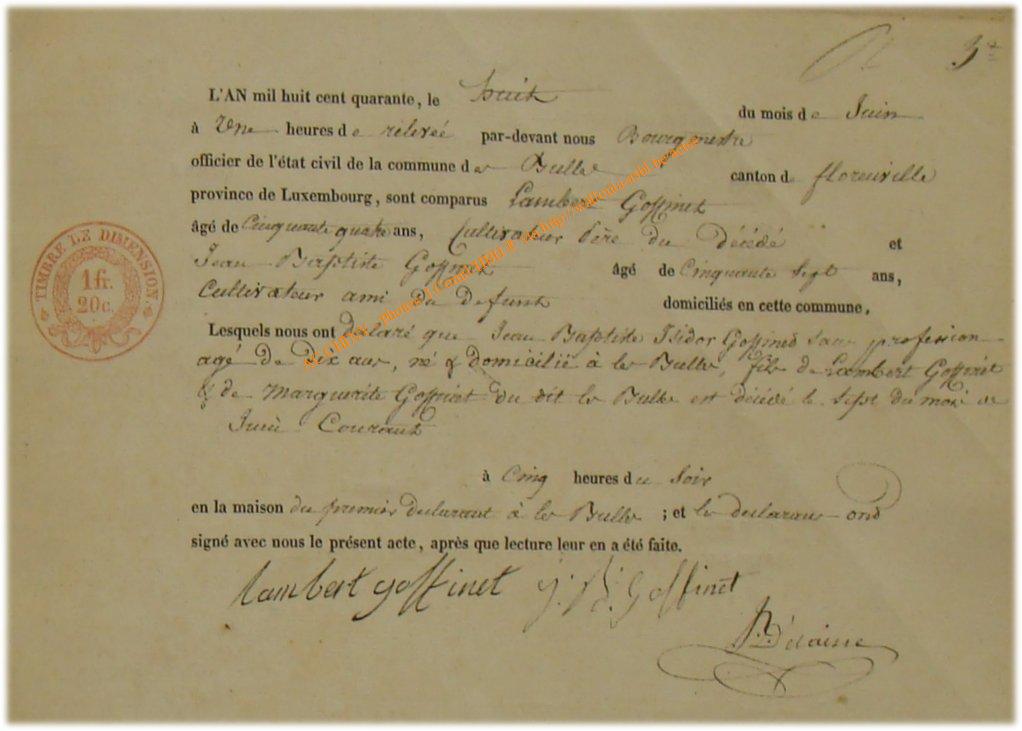 N° 3
L'AN mil huit cent quarante, le huit du mois de Juin
à Une heures de rélevée par-devant nous Bourgmestre
officier de l'état civil de la commune de les Bulles canton de florenville
province de Luxembourg, sont comparus Lambert Goffinet
âgé de Cinquante quatre ans, Cultivateur Père du décédé et
Jean Baptiste Goffinet âgé de Cinquante Sept ans,
Cultivateur ami du defunt domiciliés en cette commune.
Lesquels nous ont declaré que Jean Baptiste Isidor Goffined sans profession
agé de dix ans, né & domicilié à les Bulles, fils de Lambert Goffinet
& de Marguerite Goffinet du dit les Bulles est décédé le Sept du mois de
Juin Courant
à Cinq heures du Soir
en la maison du premier declarant à les Bulles ; et les declarans ond
signé avec nous le présent acte, après que lecture leur en a été faite.
lambert goffinet J. B. Goffinet
TIMBRE DE DIMENSION.
1 fr.
20 c.